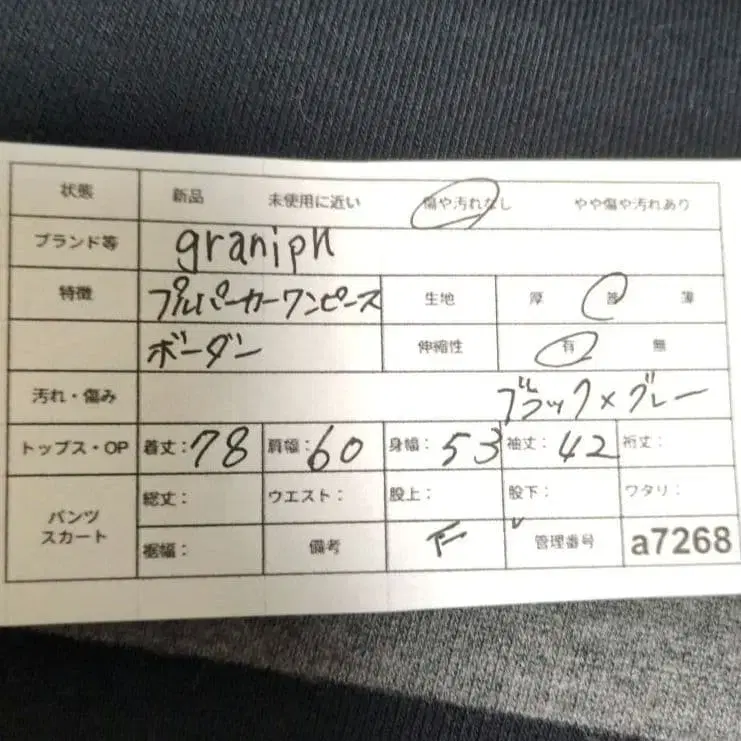 状態 新品 未使用に近い 傷や汚れなし やや傷や汚れあり
ブランド等 graniph
特徴 プルパーカーワンピース 生地 厚 普 薄
ボーダン 伸縮性 有 無
汚れ・傷み ブラック×グレー
トップス・OP 着丈:78 肩幅:60 身幅:53 袖丈:42 裄丈:
パンツ スカート 総丈: ウエスト: 股上: 股下: ワタリ:
裾幅: 備考 管理番号 a7268